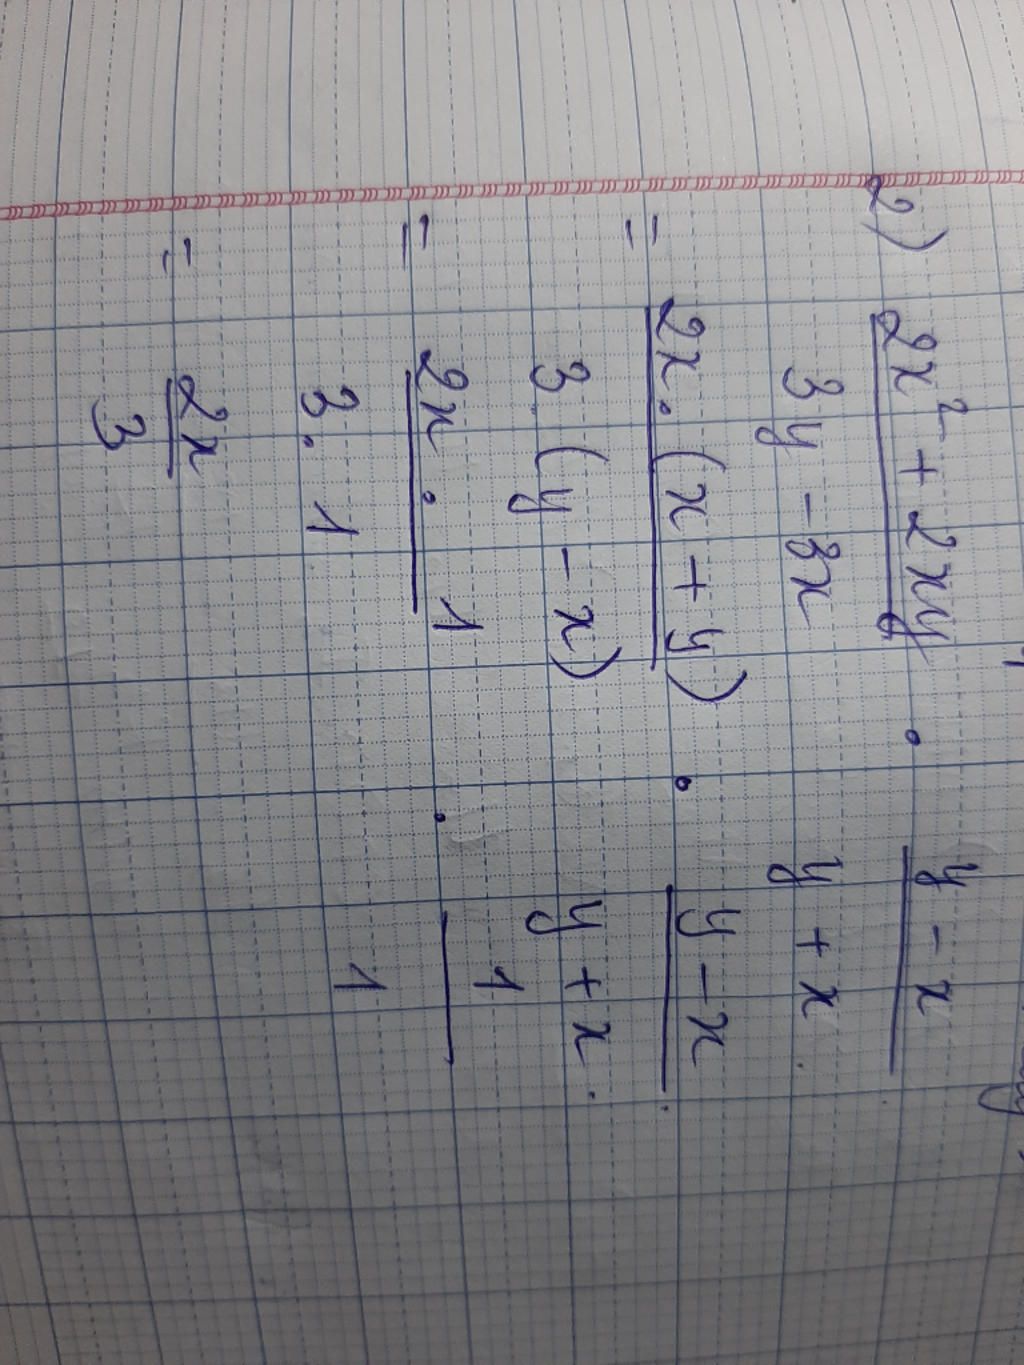 2) (2x² + 2xy)/(3y - 3x) · (y - x)/(y + x)
= (2x · (x + y))/(3 · (y - x)) · (y - x)/(y + x)
= (2x · 1)/(3 · 1) · 1/1
= 2x/3